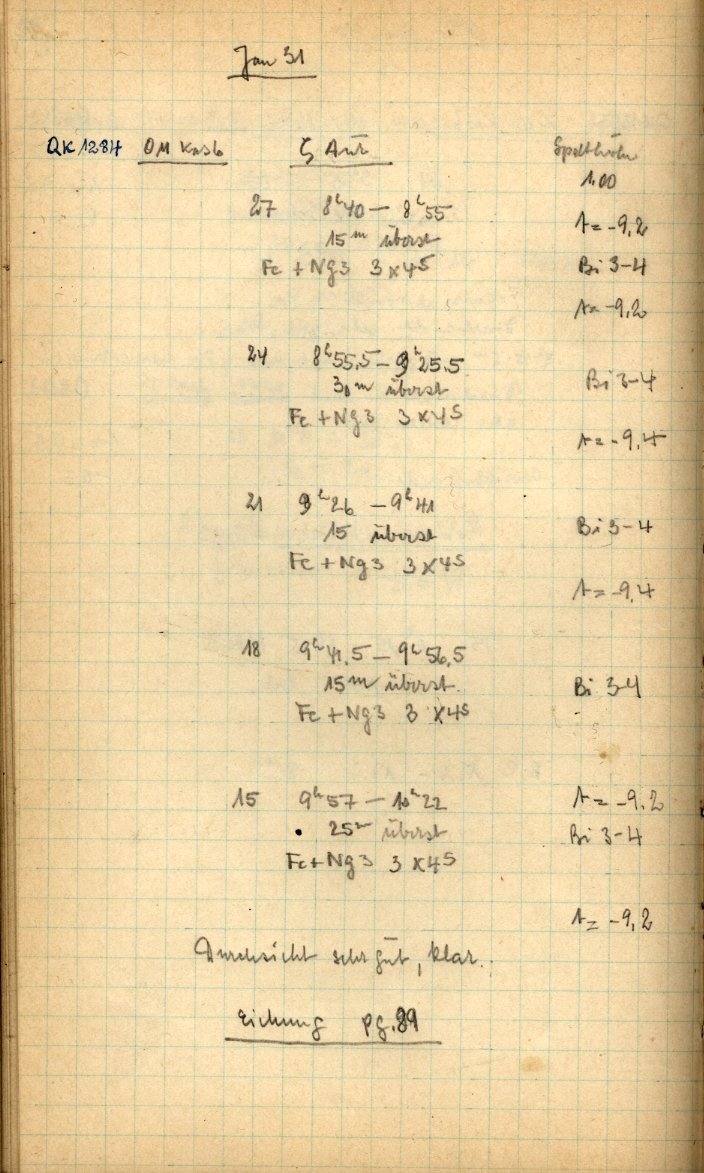 Jan 31
QK 1284 OM Kasb ζ Aur Spalthöhe
1.00
27 8ʰ40 – 8ʰ55 t = -9,2
15ᵐ überst
Fe + Ng3 3 x 4ˢ Bi 3-4
t = -9,2
24 8ʰ55,5 – 9ʰ25,5
30ᵐ überst Bi 3-4
Fe + Ng3 3 x 4ˢ
t = -9,4
21 9ʰ26 – 9ʰ41
15 überst Bi 3-4
Fe + Ng3 3 x 4ˢ
t = -9,4
18 9ʰ41,5 – 9ʰ56,5
15ᵐ überst. Bi 3-4
Fe + Ng3 3 x 4ˢ
15 9ʰ57 – 10ʰ22 t = -9,2
25ᵐ überst Bi 3-4
Fe + Ng3 3 x 4ˢ
t = -9,2
Durchsicht sehr gut, klar.
Eichung pg. 89